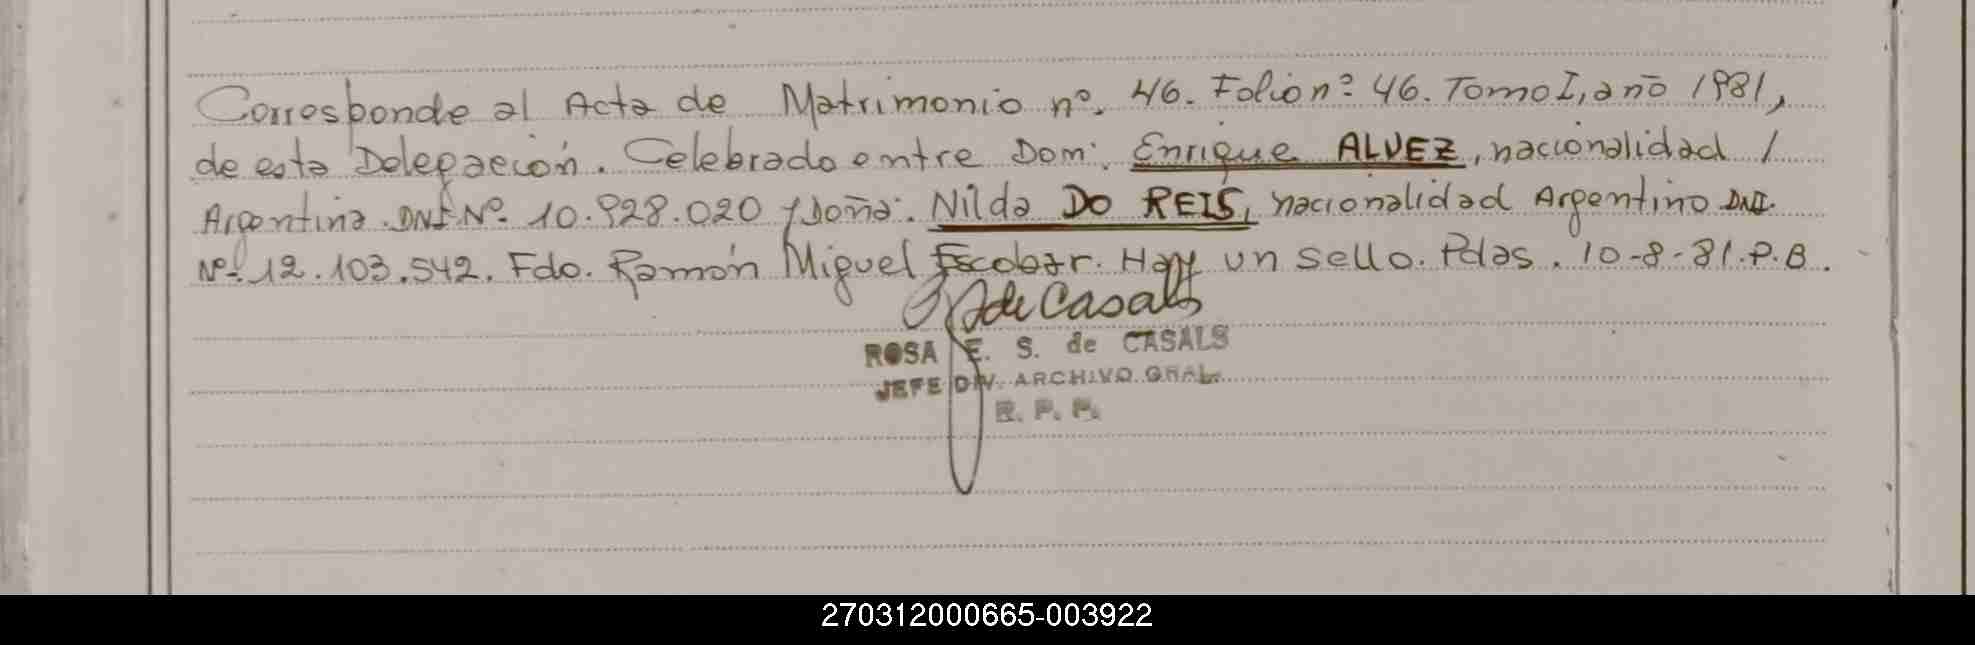 Corresponde al Acta de Matrimonio nº. 46. Folio nº 46. Tomo I, año 1981,
de esta Delegación. Celebrado entre Dom: Enrique ALVEZ, nacionalidad /
Argentina. DNI Nº. 10.928.020 y Doña: Nilda DO REIS, nacionalidad Argentino DNI.
Nº. 12.103.542. Fdo. Ramón Miguel Escobar. Hay un sello. Pdas. 10-8-81.P.B.
de Casals
ROSA E. S. de CASALS
JEFE DIV. ARCHIVO GRAL.
R. P. P.
270312000665-003922